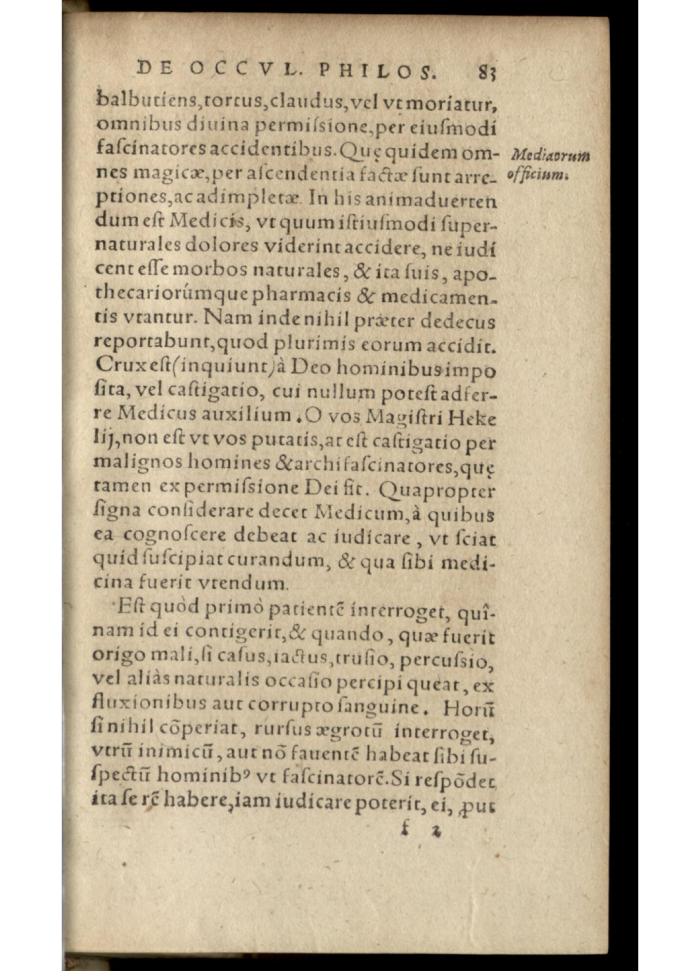 DE OCCVL. PHILOS. 83
balbutiens, tortus, claudus, vel vt moriatur,
omnibus diuina permiſsione, per eiuſmodi
faſcinatores accidentibus. Quę quidem om-
Medicorum
nes magicæ, per aſcendentia factæ ſunt arre-
officium.
ptiones, ac adimpletæ. In his animaduerten
dum eſt Medicis, vt quum iſtiuſmodi ſuper-
naturales dolores viderint accidere, ne iudi
cent eſſe morbos naturales, & ita ſuis, apo-
thecariorúmque pharmacis & medicamen-
tis vtantur. Nam inde nihil præter dedecus
reportabunt, quod plurimis eorum accidit.
Crux eſt (inquiunt) à Deo hominibus impo
ſita, vel caſtigatio, cui nullum poteſt adfer-
re Medicus auxilium. O vos Magiſtri Heke
lij, non eſt vt vos putatis, at eſt caſtigatio per
malignos homines & archifaſcinatores, quę
tamen ex permiſsione Dei fit. Quapropter
ſigna conſiderare decet Medicum, à quibus
ea cognoſcere debeat ac iudicare, vt ſciat
quid ſuſcipiat curandum, & qua ſibi medi-
cina fuerit vtendum.
Eſt quòd primò patientē interroget, quî-
nam id ei contigerit, & quando, quæ fuerit
origo mali, ſi caſus, iactus, truſio, percuſsio,
vel aliàs naturalis occaſio percipi queat, ex
fluxionibus aut corrupto ſanguine. Horū
ſi nihil cōperiat, rurſus ægrotū interroget,
vtrū inimicū, aut nō fauentē habeat ſibi ſu-
ſpectū hominibꝰ vt faſcinatorē. Si reſpōdet
ita ſe rē habere, iam iudicare poterit, ei, ꝓut
f 2